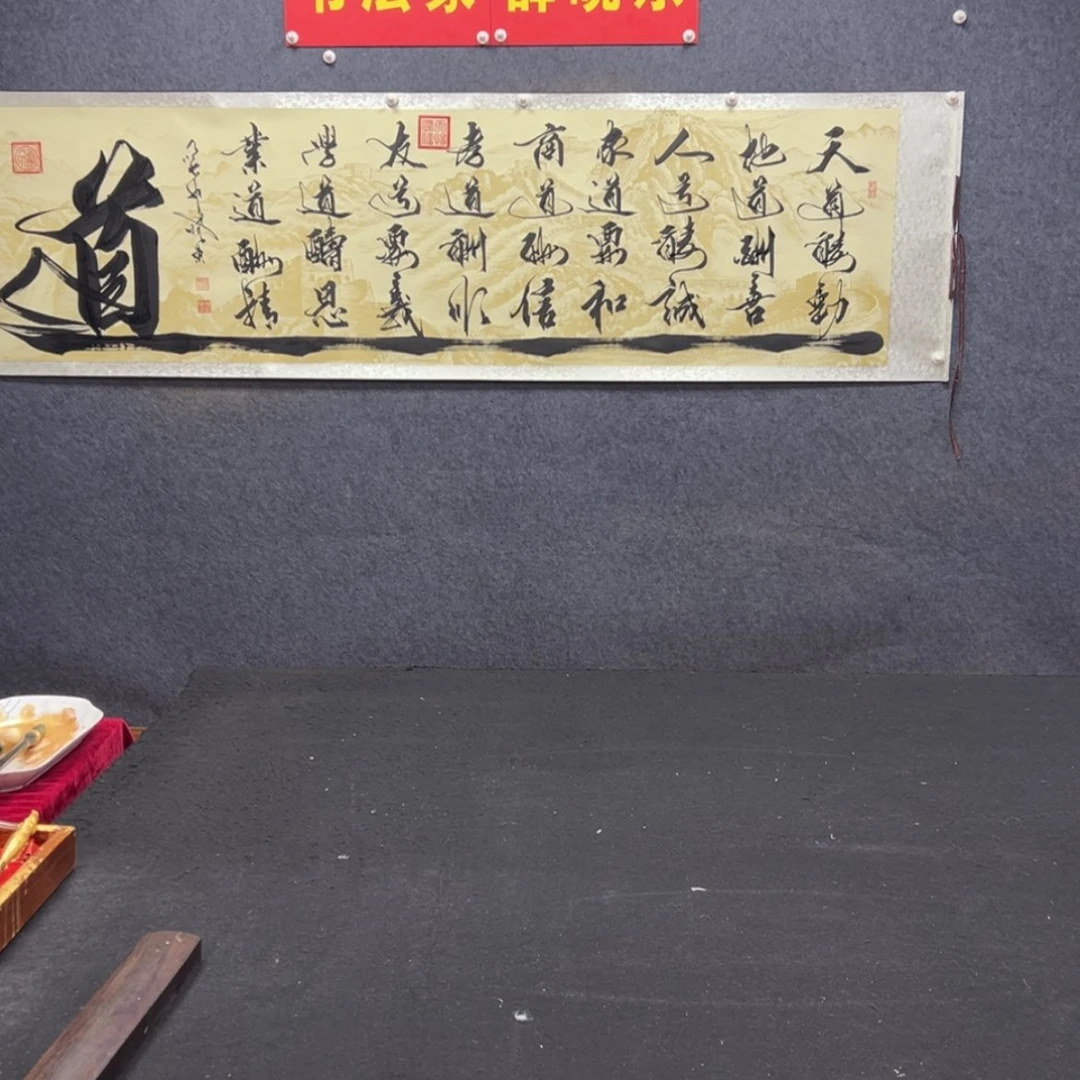 书法家
天道酬勤
地道酬善
人道酬誠
家道酬和
商道酬信
孝道酬順
友道酬義
學道酬思
業道酬精
道